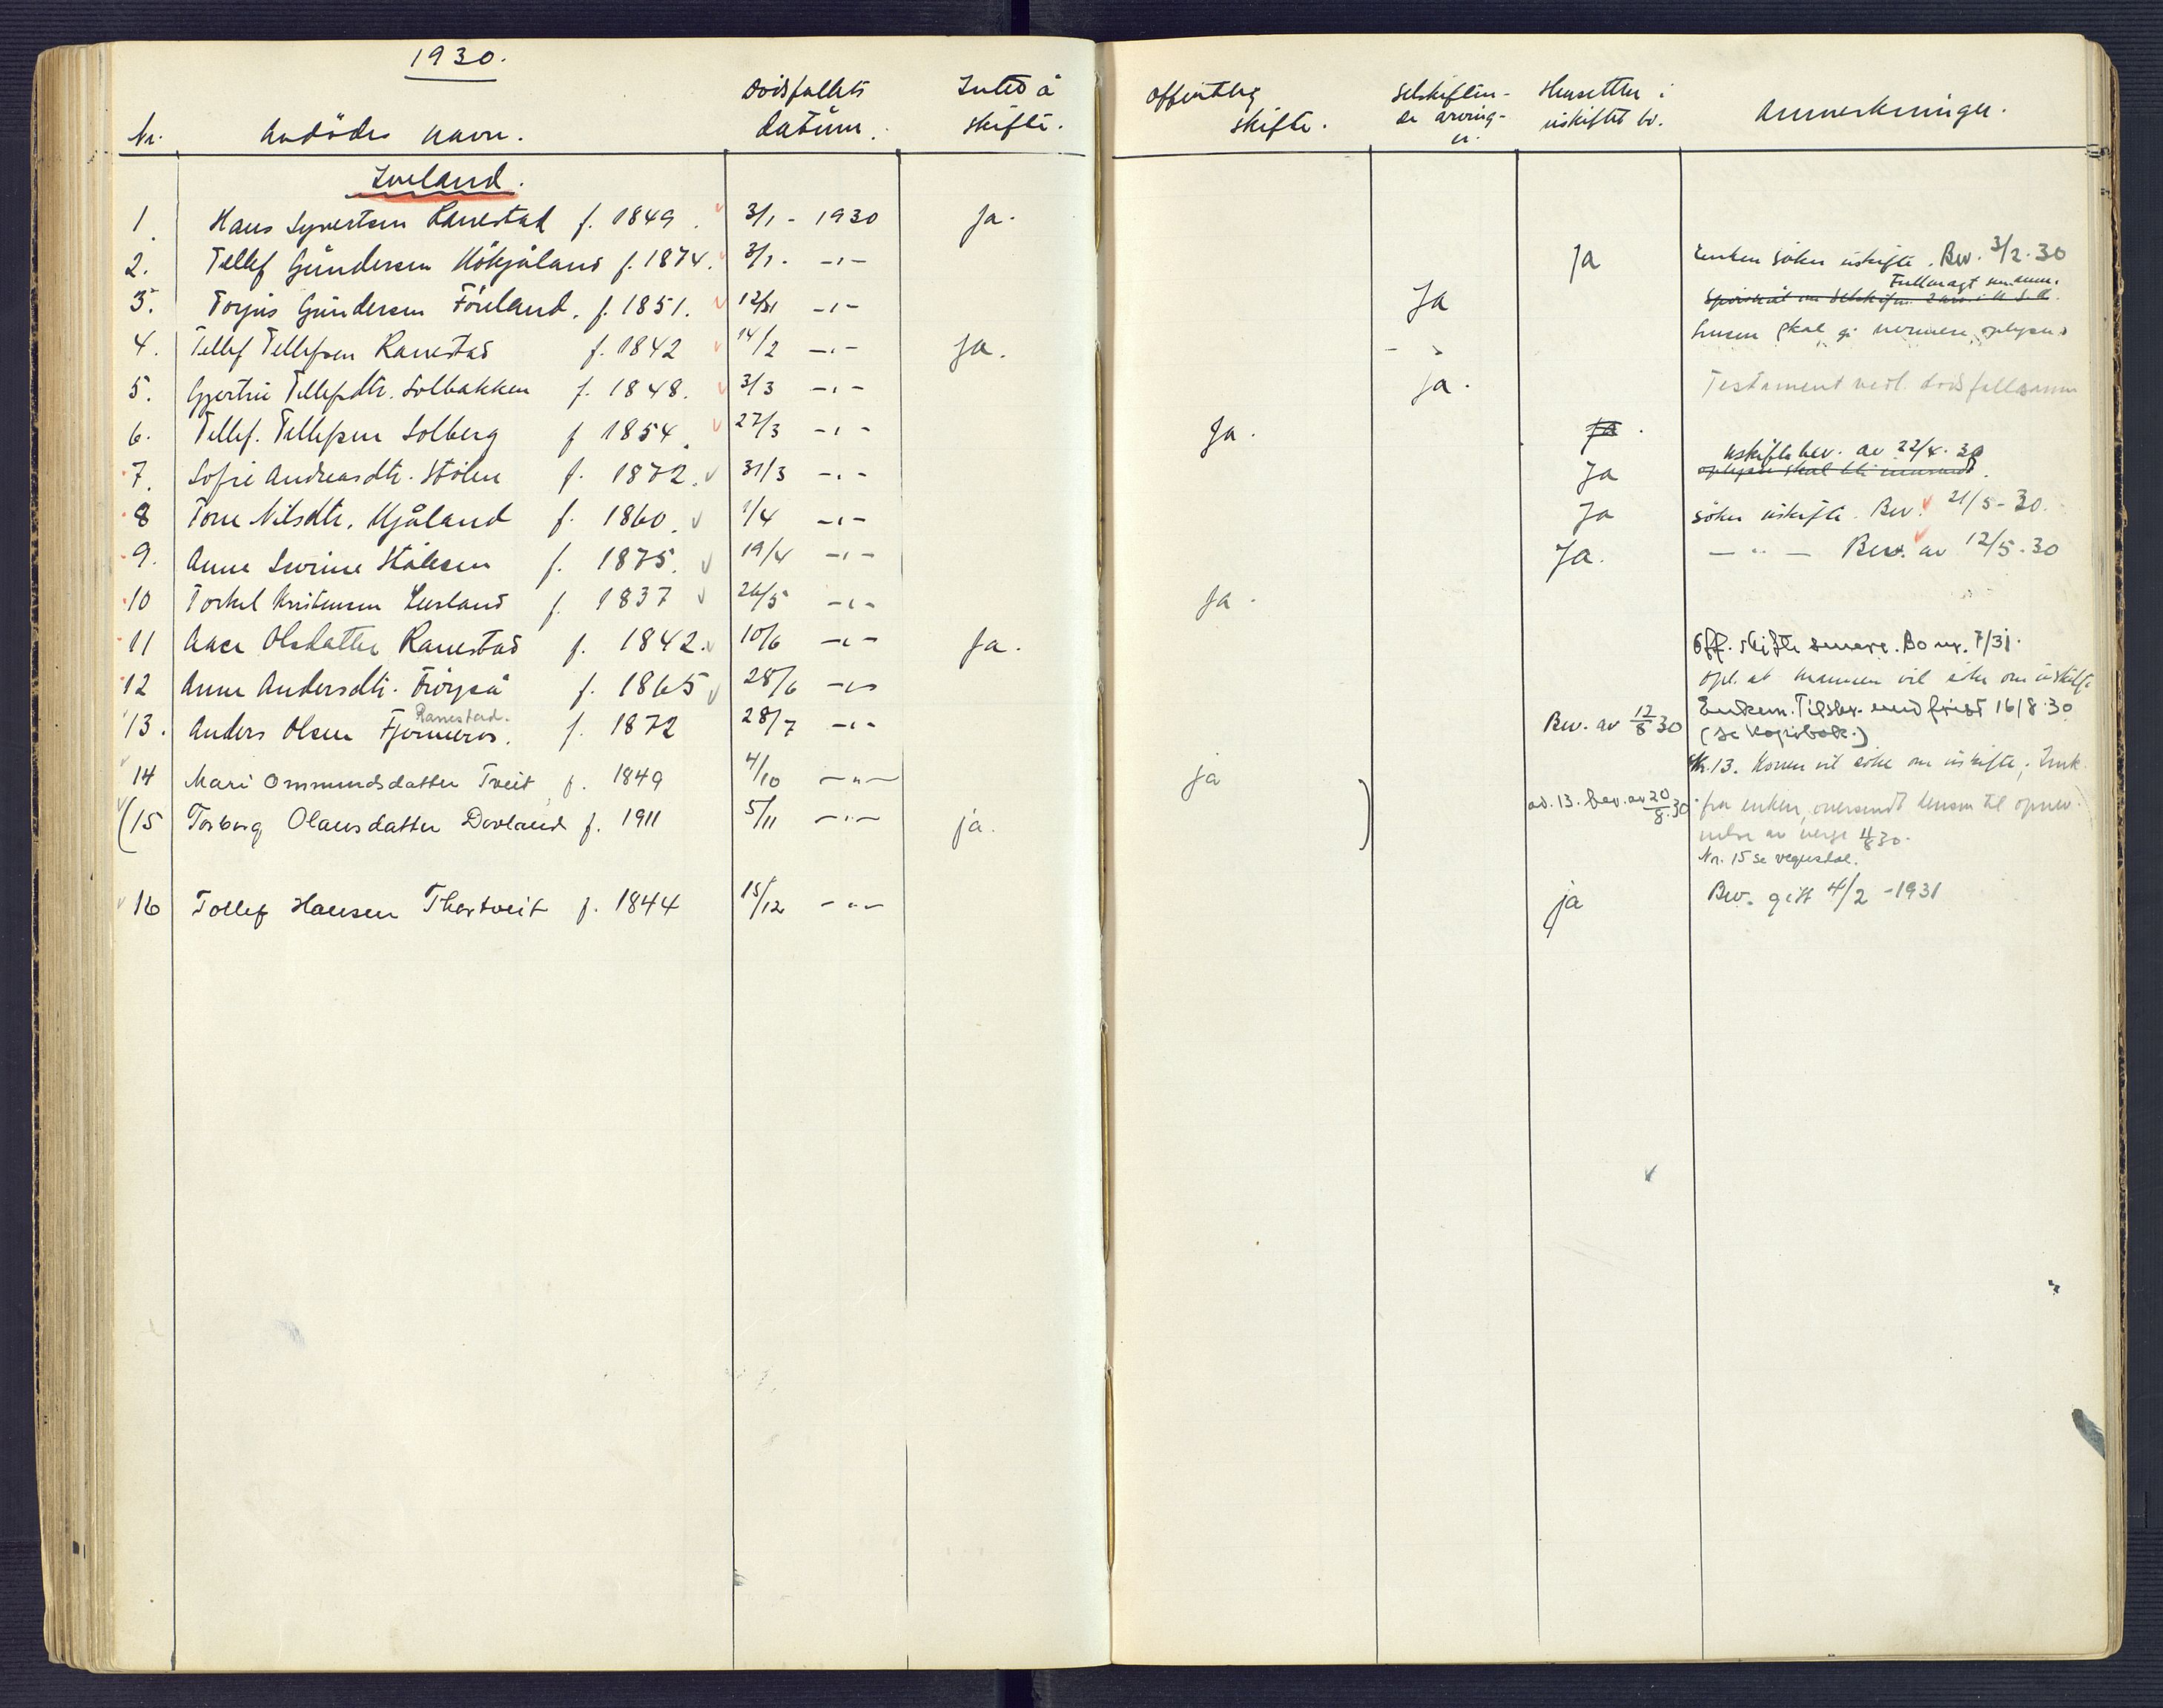 1930.
Nr. Avdødes navn. Dødsfallets datum. Intet å skifte. Offentlig skifte. Selskiftende arvinger. Husettler i uskiftet bo. Anmerkninger.
Iveland.
1. Hans Syvertsen Ranestad f. 1849. 3/1 - 1930 Ja.
2. Tellef Gundersen Håkjåland f. 1874. 3/1. -"- Ja Enken søker uskifte. Bev. 3/2.30
3. Torjus Gundersen Föreland. f. 1851. 12/1 -"- Ja Fullmagt
4. Tellef Tellefsen Ranestad f. 1842 14/2 -"- Ja. skal gi nermere oplysn.
5. Gjertrud Tellefsdtr. Solbakken f. 1848. 3/3 -"- Ja. Testament vedl. dødsfallsanm
6. Tellef. Tellefsen Solberg f 1854. 27/3 -"- Ja. Ja.
7. Sofie Andreasdtr. Stølen f. 1872. 31/3 -"- Ja uskiftebev. av 22/4.30
8 Tone Nilsdtr. Kjåland f. 1860. 1/4 -"- Ja søker uskifte. Bev. 21/5-30.
9. Anne Severine Ståleson f. 1875. 19/4 -"- Ja. -"- Bev. av 12/5.30
10 Torkel Kristensen f. 1837 26/5 -"- Ja.
11 Aase Olsdatter Ranestad f. 1842. 10/6 -"- Ja. Off. skifte senere. Bo nr. 7/31.
12 Anne Andersdtr. Frøyså f. 1865 28/6 -"- Opl. at mannen vil søke om uskifte
Ranestad.
13. Anders Olsen Fjermeros. f. 1872 28/7 -"- Bev. av 12/8 30 Enkem. Tilskr. med frist 16/8.30
(se kopibok.)
14 Mari Ommundsdatter Tveit f. 1849 4/10 -"- ja Nr. 13. Konen vil søke om uskifte,
(15 Torborg Olausdatter Dovland f. 1911 5/11 -"- ja. ) ad. 13. bev. av 20/8.30 fra enken, oversendt lensm til opnev-
nelse av verge 11/8 30.
Nr. 15 se
16 Tollef Hansen Thortveit f. 1844 15/12 -"- ja Bev. gitt 4/2 -1931